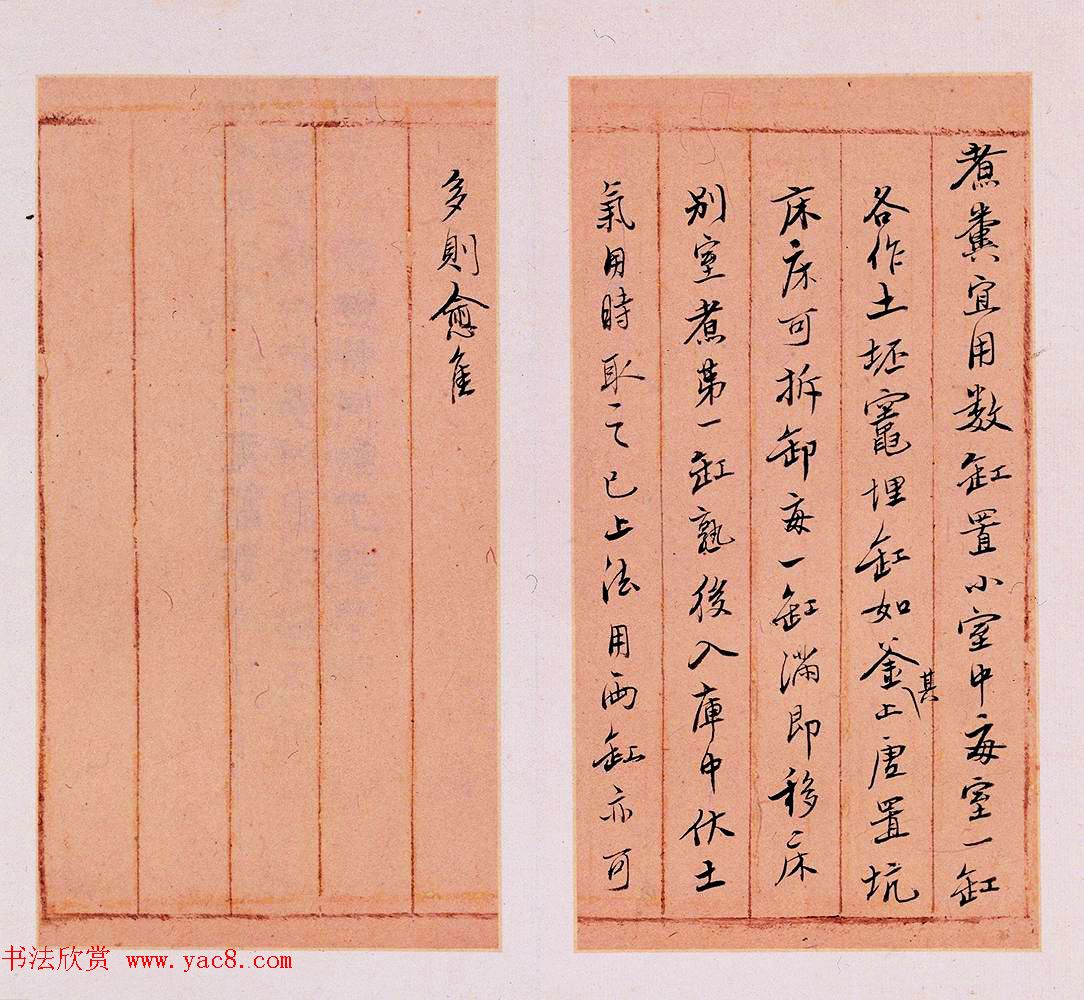 煮糞宜用数缸置小室中每室一缸
各作土坯竈埋缸如釜其上唐置坑
床床可拆卸每一缸滿即移床
别室煮第一缸熟後入庫中伏土
氣用時取之已上法用両缸亦可
多則愈隹
书法欣赏 www.yac8.com